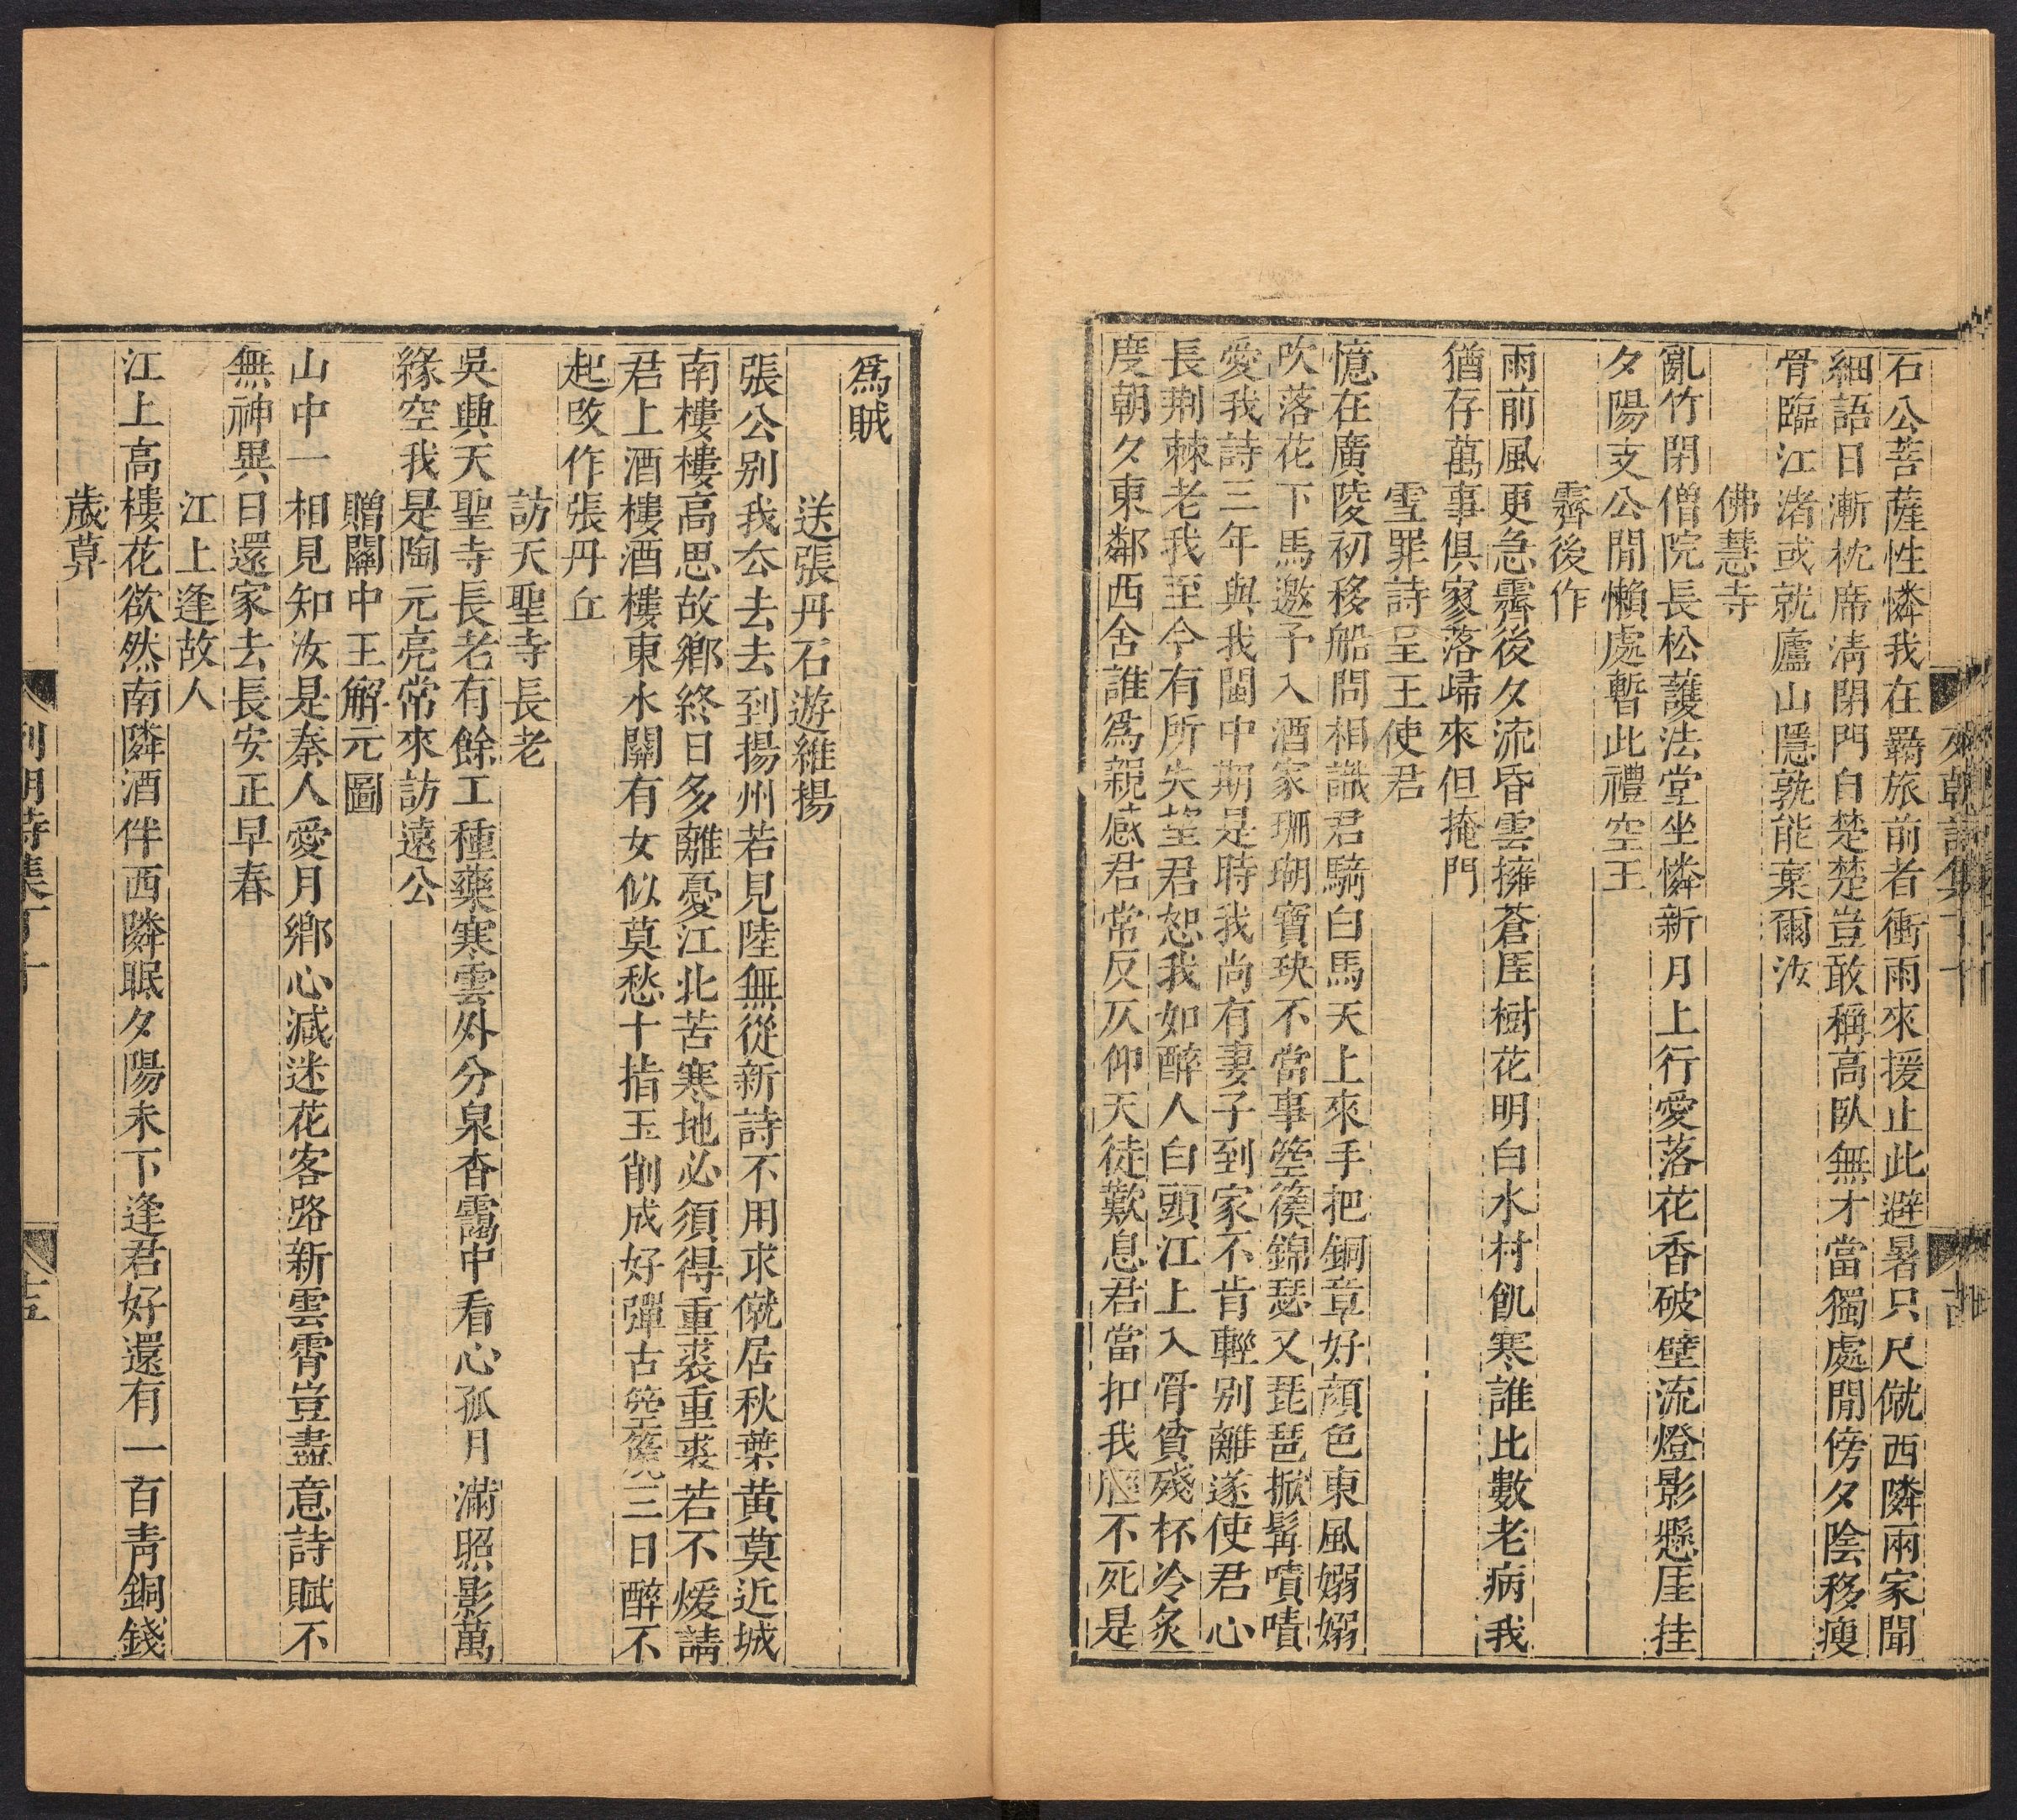 石公菩薩性憐我在羇旅前者衝雨來援止此避暑只尺僦西隣兩家聞
細語日漸枕席清閉門自楚楚豈敢稱高臥無才當獨處閒傍夕陰移瘦
骨臨江渚或就廬山隱孰能棄爾汝
佛慧寺
亂竹閉僧院長松護法堂坐憐新月上行愛落花香破壁流燈影懸厓挂
夕陽支公閒懶處暫此禮空王
霽後作
雨前風更急霽後夕流昏雲擁蒼厓樹花明白水村飢寒誰比數老病我
猶存萬事俱寥落歸來但掩門
雪罪詩呈王使君
憶在廣陵初移船問相識君騎白馬天上來手把銅章好顏色東風嫋嫋
吹落花下馬邀予入酒家珊瑚寶玦不當事箜篌錦瑟又琵琶掀髯嘖嘖
愛我詩三年與我閩中期是時我尚有妻子到家不肯輕别離遂使君心
長荆棘老我至今有所失望君恕我如醉人白頭江上入骨貧殘杯冷炙
度朝夕東鄰西舍誰爲親感君常反仄仰天徒歎息君當扣我脛不死是
列朝詩集丁十
古
爲賊
送張丹石遊維揚
張公别我厺去去到揚州若見陸無從新詩不用求僦居秋葉黄莫近城
南樓樓高思故鄉終日多離憂江北苦寒地必須得重裘重裘若不煖請
君上酒樓酒樓東水關有女似莫愁十指玉削成好彈古箜篌三日醉不
起攺作張丹丘
訪天聖寺長老
吳興天聖寺長老有餘工種藥寒雲外分泉杳靄中看心孤月滿照影萬
緣空我是陶元亮常來訪遠公
贈關中王解元圖
山中一相見知汝是秦人愛月鄉心減迷花客路新雲霄豈盡意詩賦不
無神異日還家去長安正早春
江上逢故人
江上高樓花欲然南隣酒伴西隣眠夕陽未下逢君好還有一百靑銅錢
歲莫
列朝詩集丁十
十五